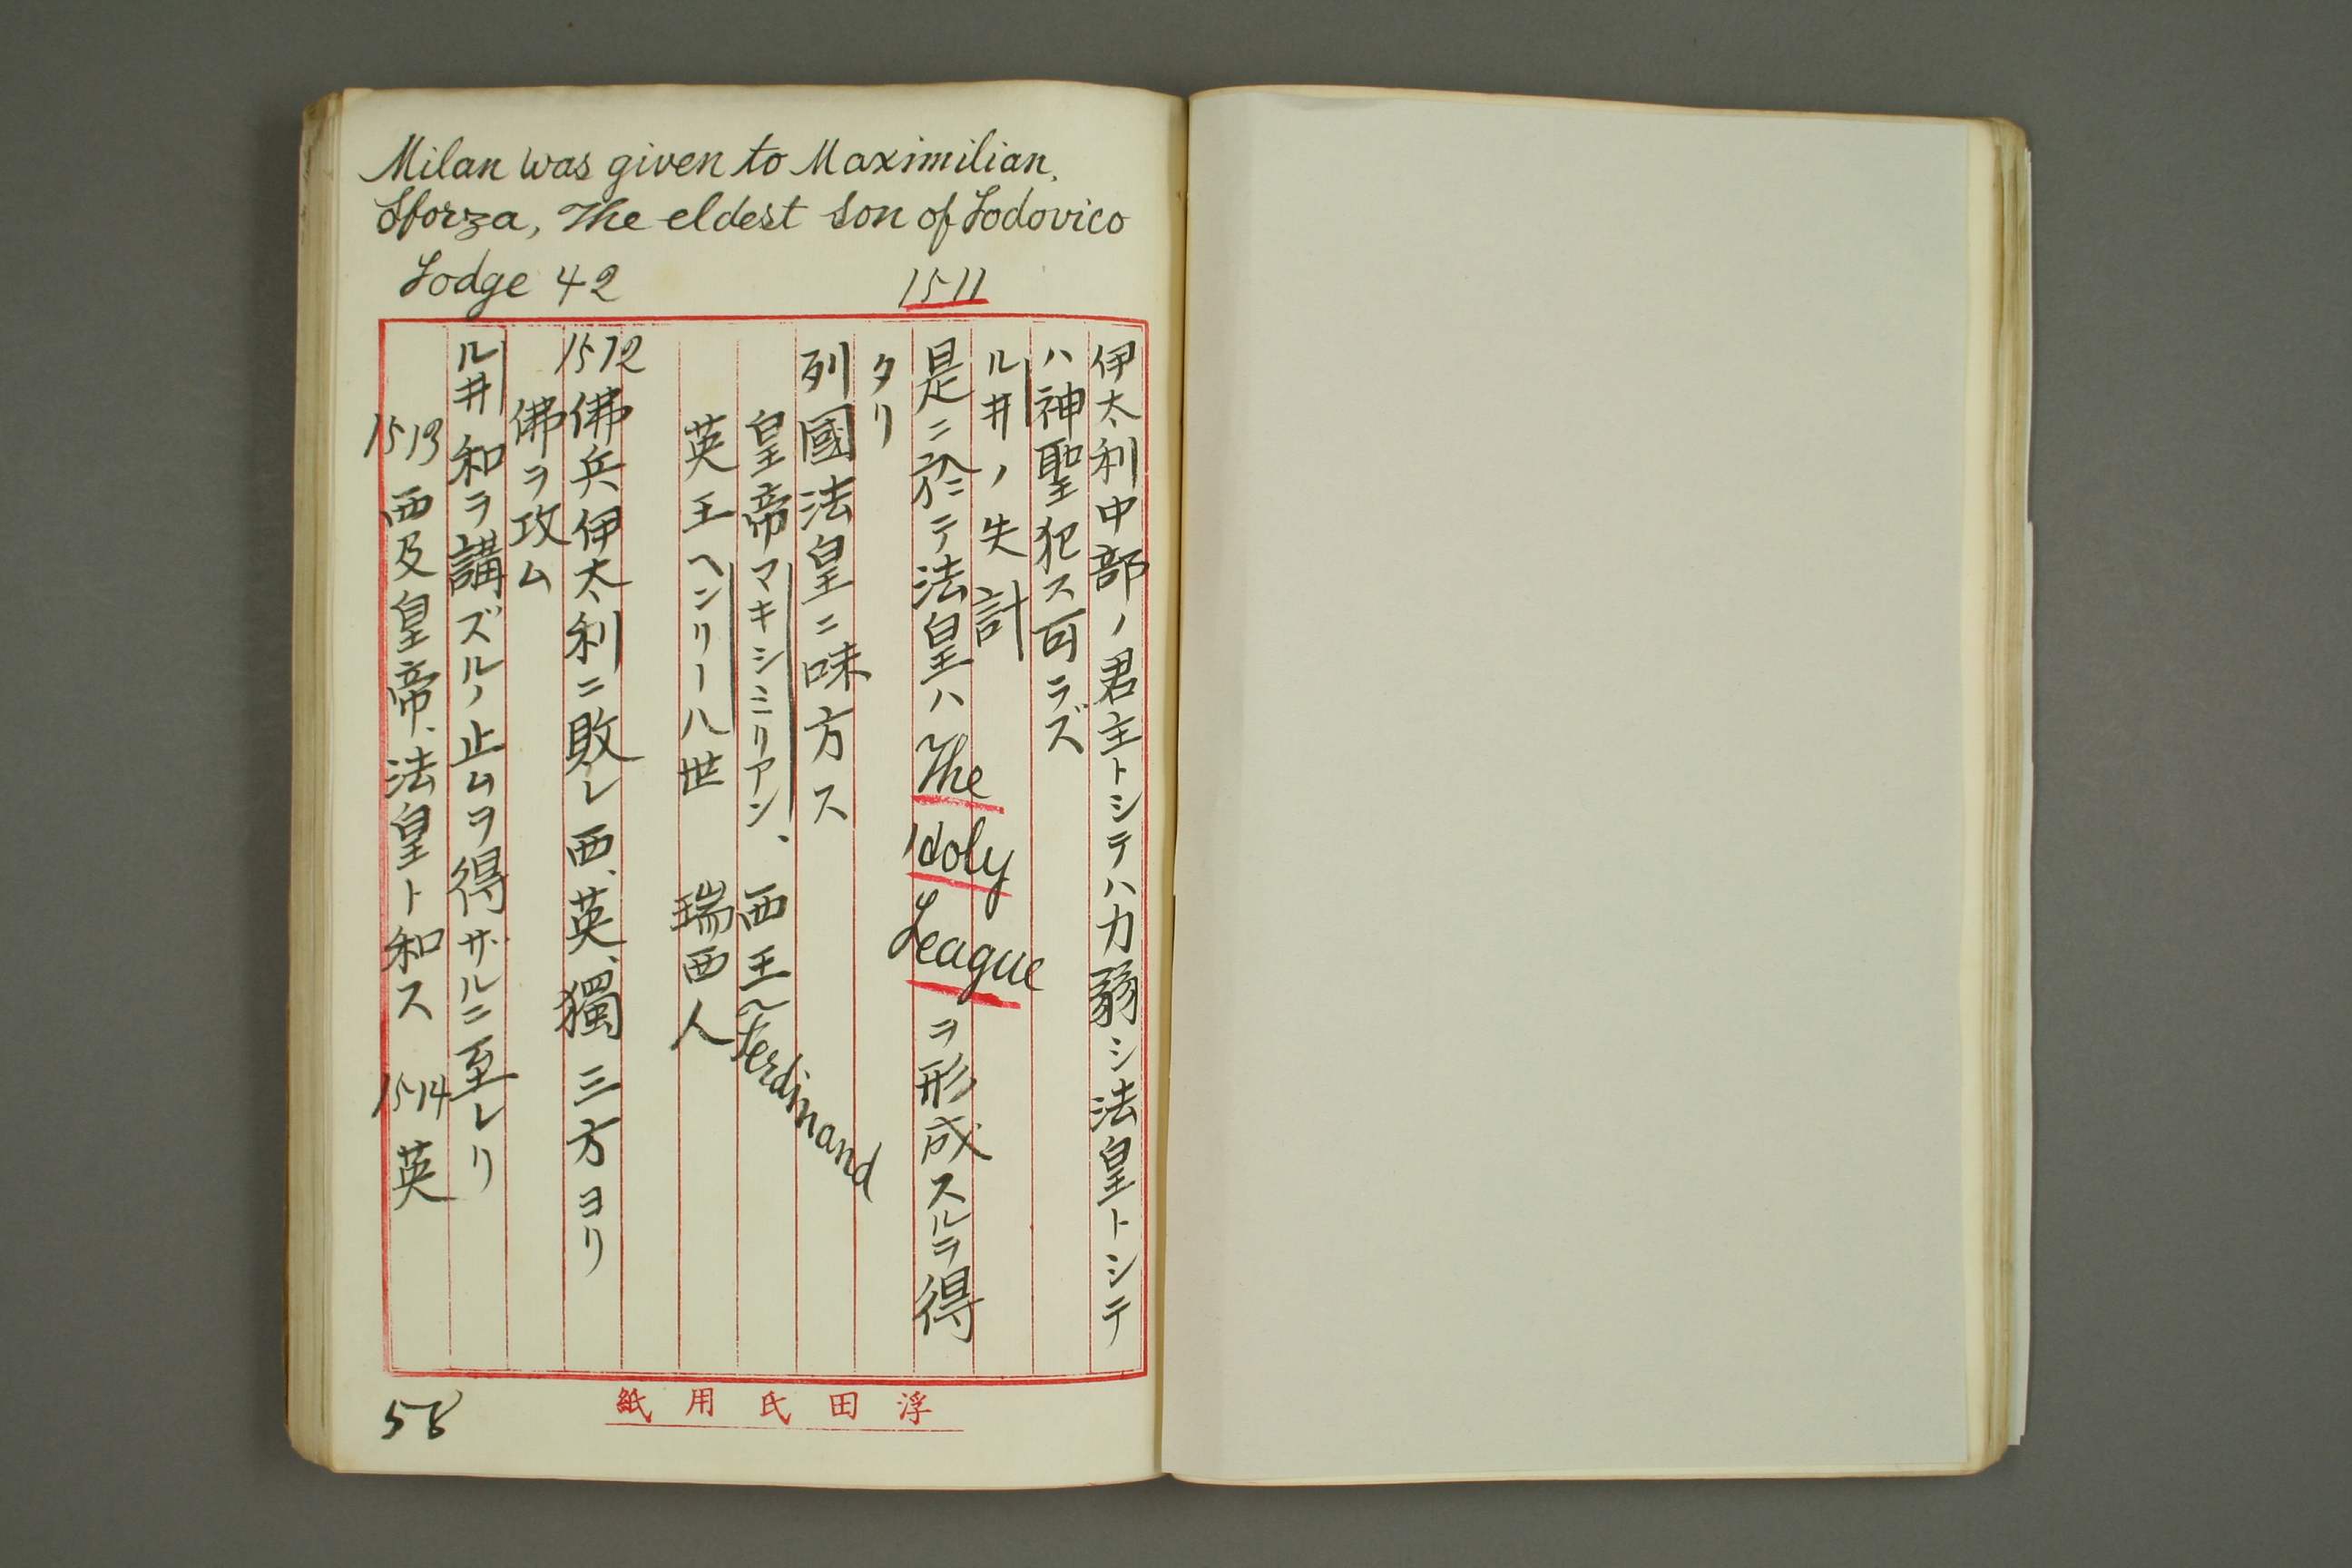 Milan was given to Maximilian.
Sforza, The eldest son of Lodovico
Lodge 42
1511
伊太利中部ノ君主トシテハ力弱シ法皇トシテ
ハ神聖犯ス可ラズ
ルヰノ失計
是ニ於テ法皇ハ The Holy League ヲ形成スルヲ得
タリ
列國法皇ニ味方ス
皇帝マキシミリアン、西王〜Ferdinand
英王ヘンリー八世 瑞西人
1512 佛兵伊太利ニ敗レ西、英、獨三方ヨリ
佛ヲ攻ム
ルヰ和ヲ講ズルノ止ムヲ得ザルニ至レリ
1513 西及皇帝、法皇ト和ス 1514 英
浮田氏用紙
58